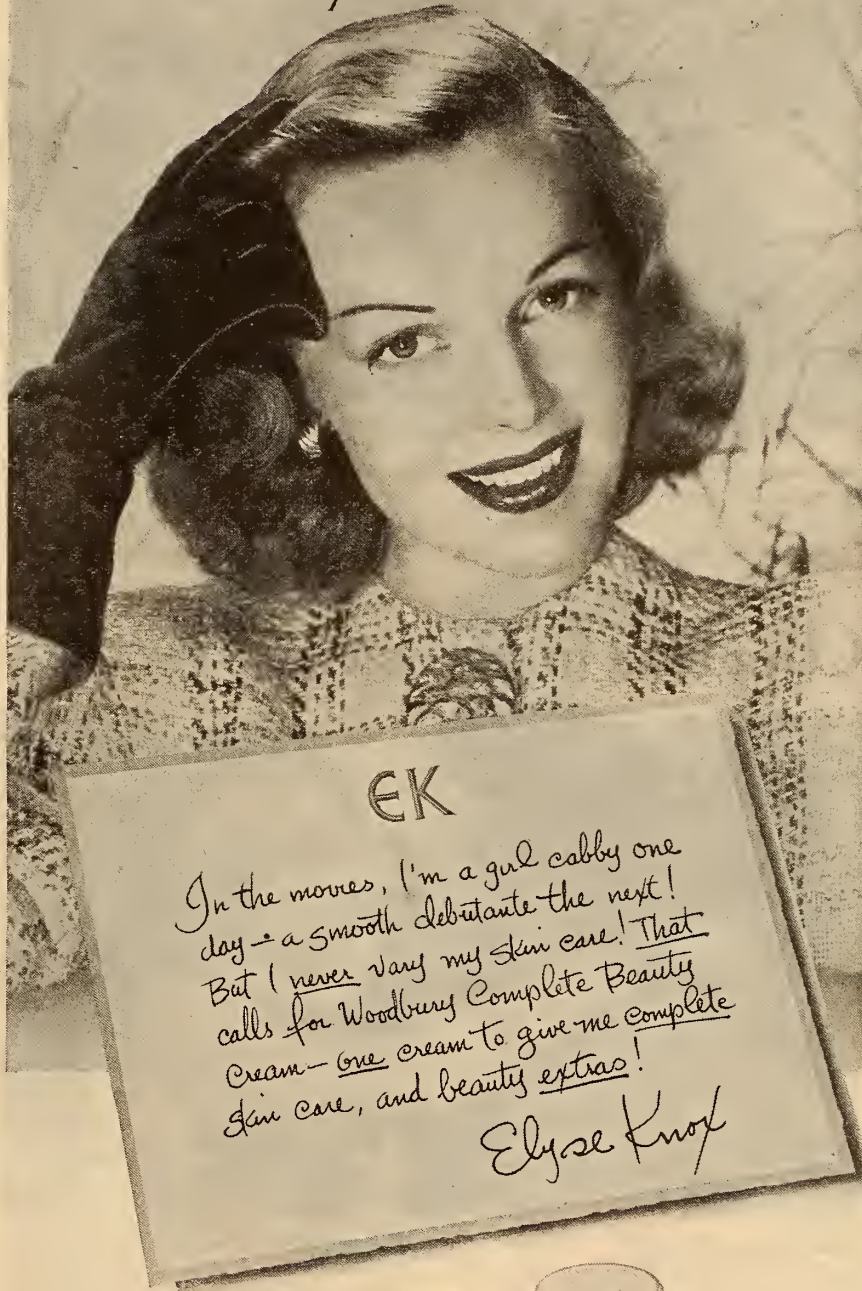 EK
In the movies, I'm a girl cabby one
day – a smooth debutante the next!
But I never vary my skin care! That
calls for Woodbury Complete Beauty
Cream – one cream to give me complete
skin care, and beauty extras!
Elyse Knox